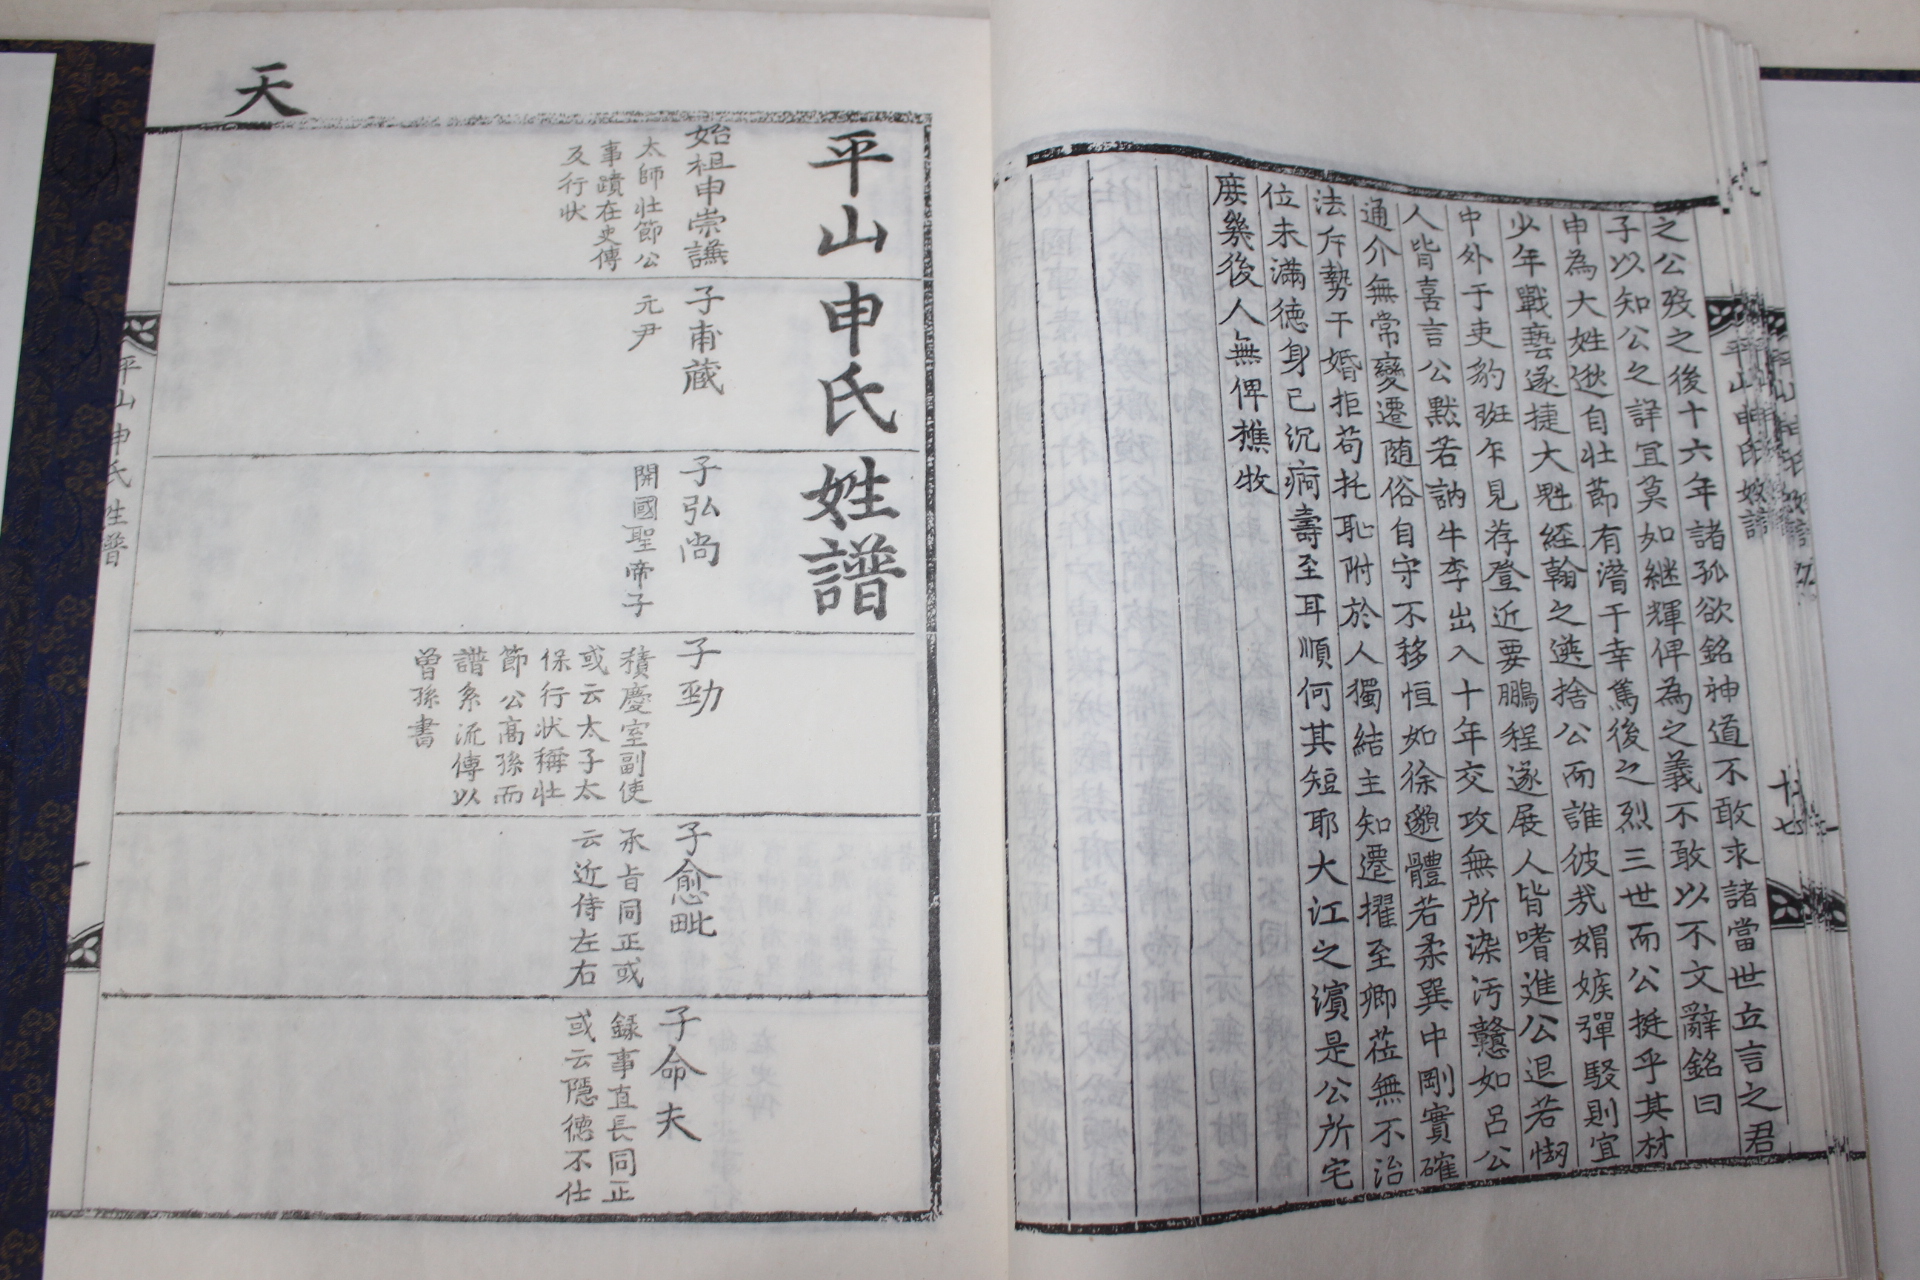 之公歿之後十六年諸孤欲銘神道不敢求諸當世立言之君
子以知公之詳宜莫如継輝俾為之義不敢以不文辭銘曰
申為大姓逖自壮節有潜于幸篤後之烈三世而公挺乎其材
少年戰藝遂捷大魁經翰之選捨公而誰彼㦲娟嫉彈駁則宜
中外于吏豹斑乍見荐登近要鵬程遂展人皆嗜進公退若㤼
人皆喜言公黙若訥牛李出入十年交攻無所染汚戇如呂公
通介無常變遷随俗自守不移恒如徐邈體若柔巽中剛實確
法斥勢干婚拒苟托恥附於人獨結主知遷擢至卿莅無不治
位未滿德身已沉痾壽至耳順何其短耶大江之濱是公所宅
庻㡬後人無俾樵牧
平山申氏姓譜
十七
天
平山申氏姓譜
始祖申崇謙
太師壮節公
事蹟在史傳
及行状
子甫藏
元尹
子弘尚
開國聖帝子
子勁
積慶室副使
或云太子太
保行状稱壮
節公高孫而
譜系流傳以
曽孫書
子愈毗
承㫖同正或
云近侍左右
子命夫
録事直長同正
或云隱德不仕
平山申氏姓譜
一